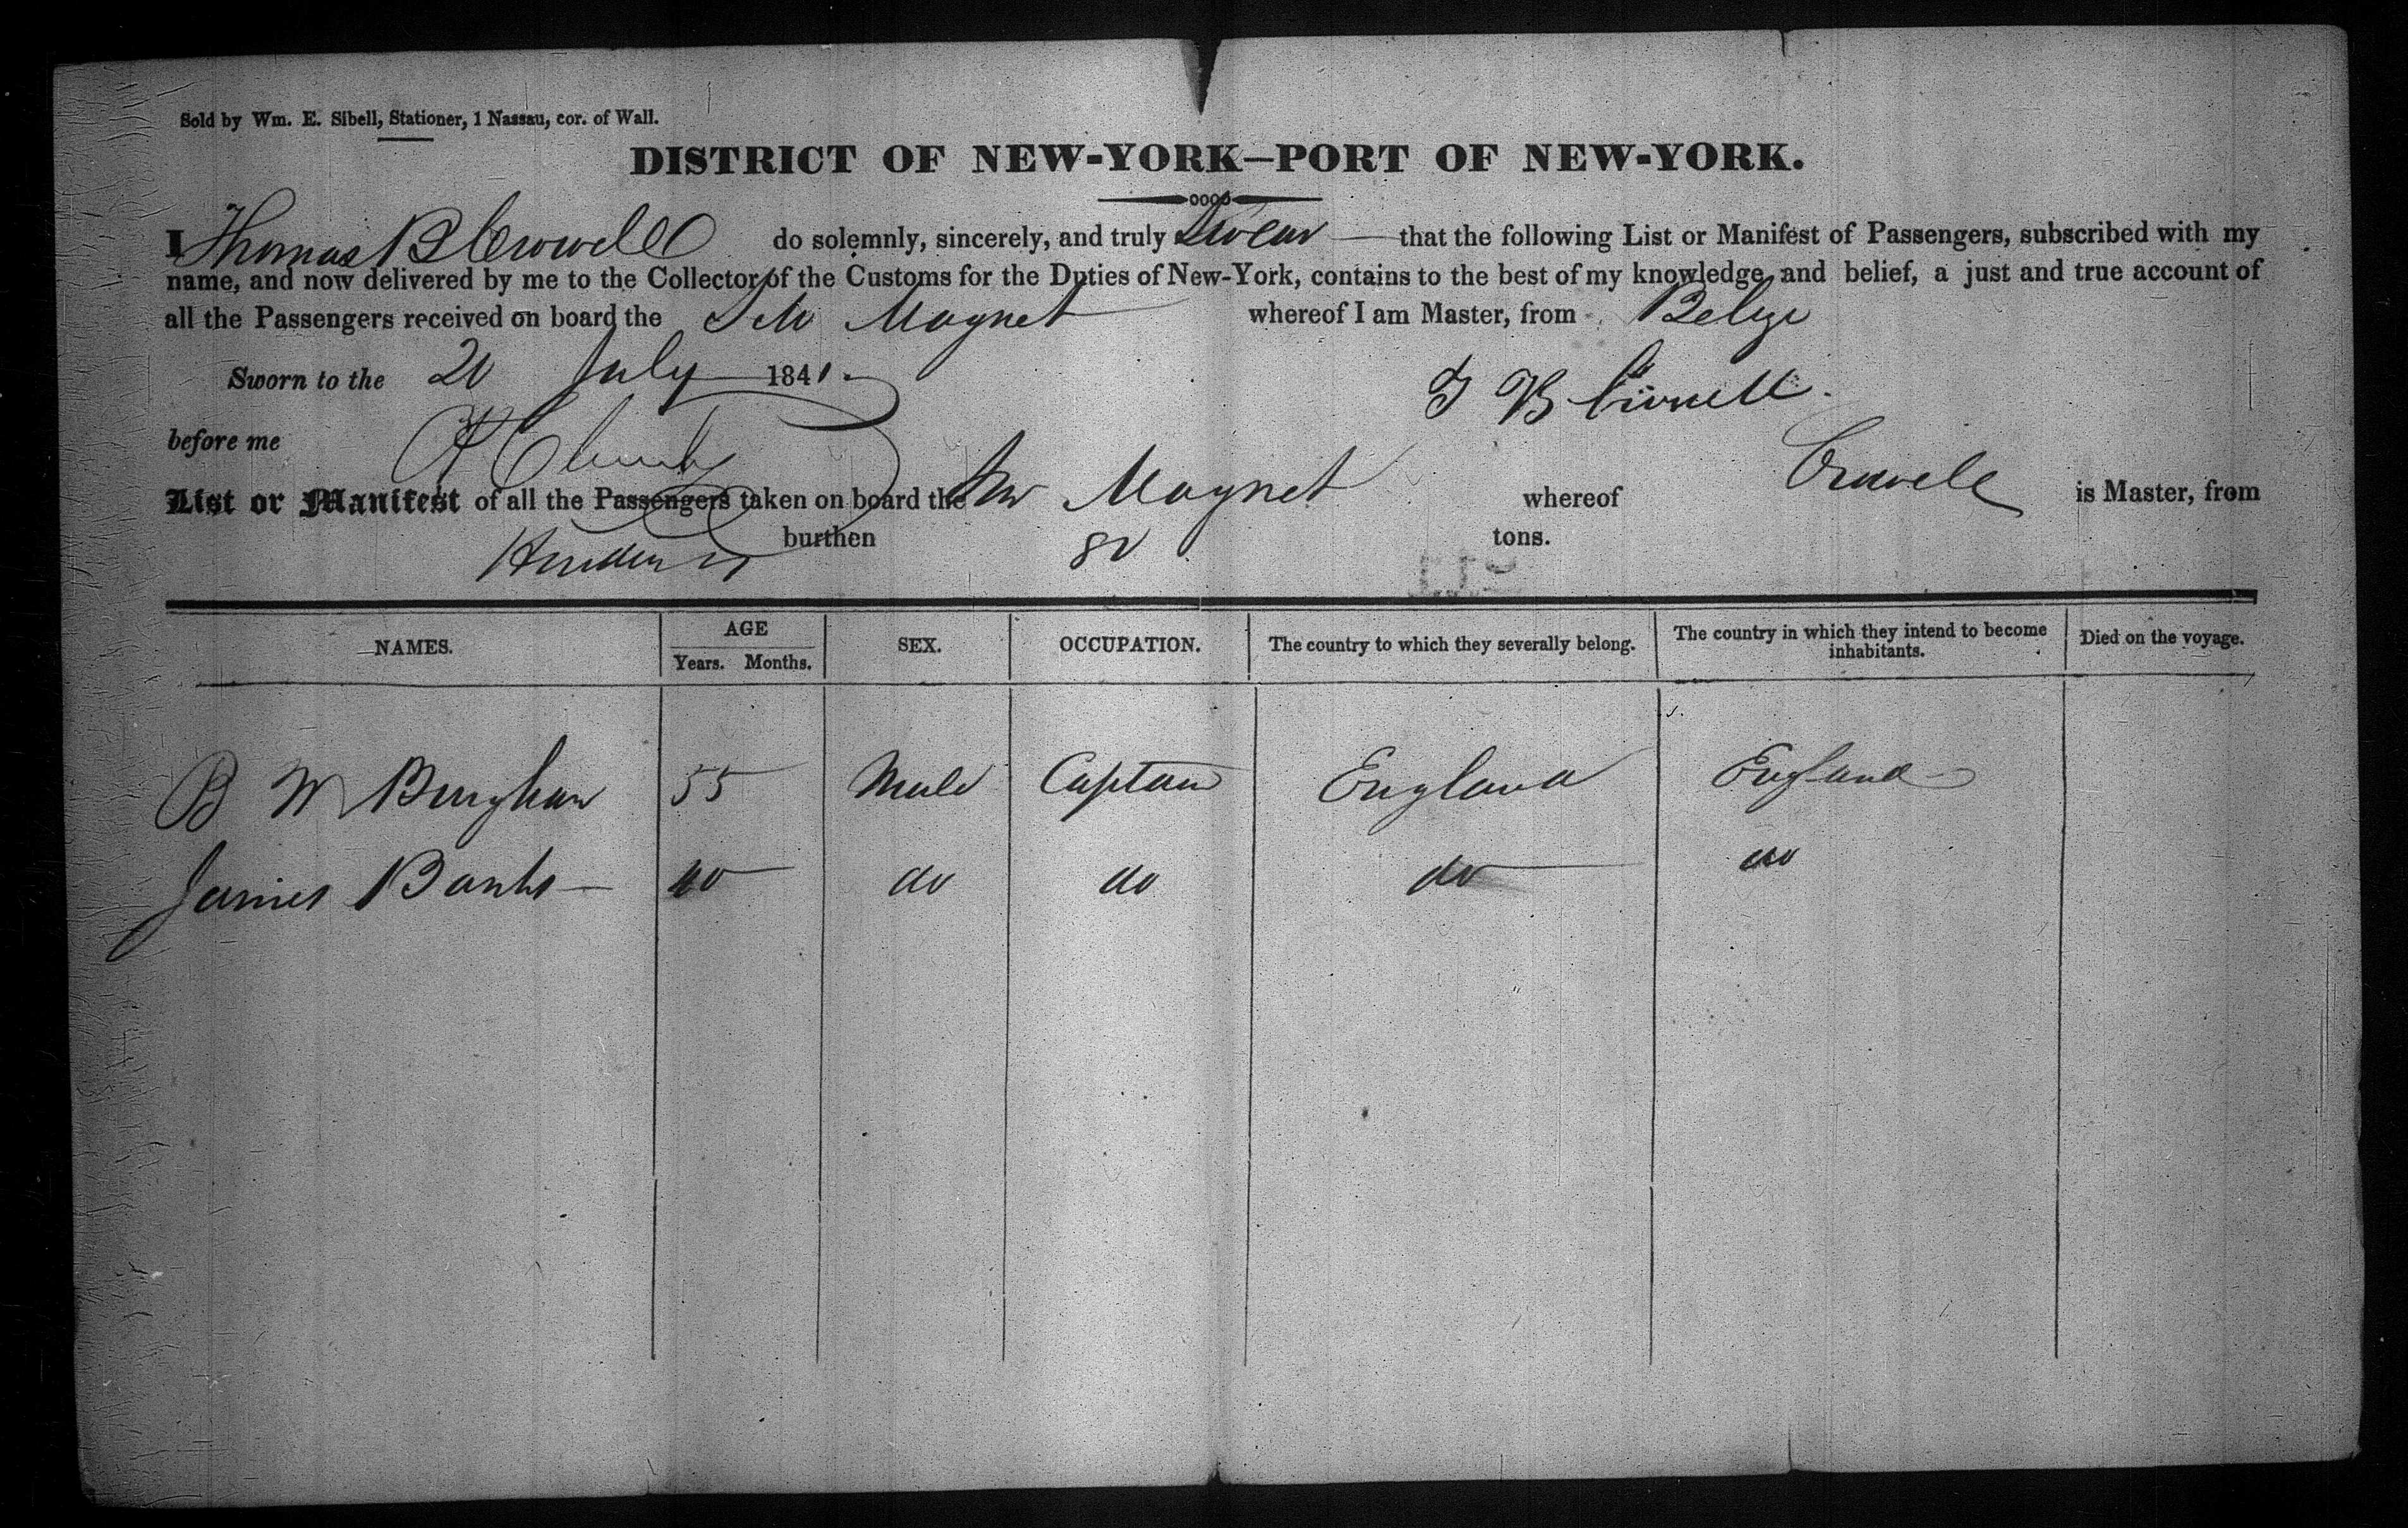 Sold by Wm. E. Sibell, Stationer, 1 Nassau, cor. of Wall.
DISTRICT OF NEW-YORK—PORT OF NEW-YORK.
I Thomas B do solemnly, sincerely, and truly Swear that the following List or Manifest of Passengers, subscribed with my
name, and now delivered by me to the Collector of the Customs for the Duties of New-York, contains to the best of my knowledge and belief, a just and true account of
all the Passengers received on board the Magnet whereof I am Master, from Belize
Sworn to the 20 July 1841.
T B
before me
List or Manifest of all the Passengers taken on board the Magnet whereof is Master, from
burthen 80 tons.
NAMES. AGE Years. Months. SEX. OCCUPATION. The country to which they severally belong. The country in which they intend to become inhabitants. Died on the voyage.
B W 55 Male Captain England England
James Banks 40 do do do do